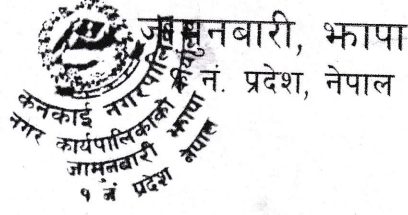 जामुनबारी, झापा
नं. प्रदेश, नेपाल
कनकाई नगरपालिका
नगर कार्यपालिकाको कार्यालय
जामुनबारी झापा
१ नं प्रदेश नेपाल